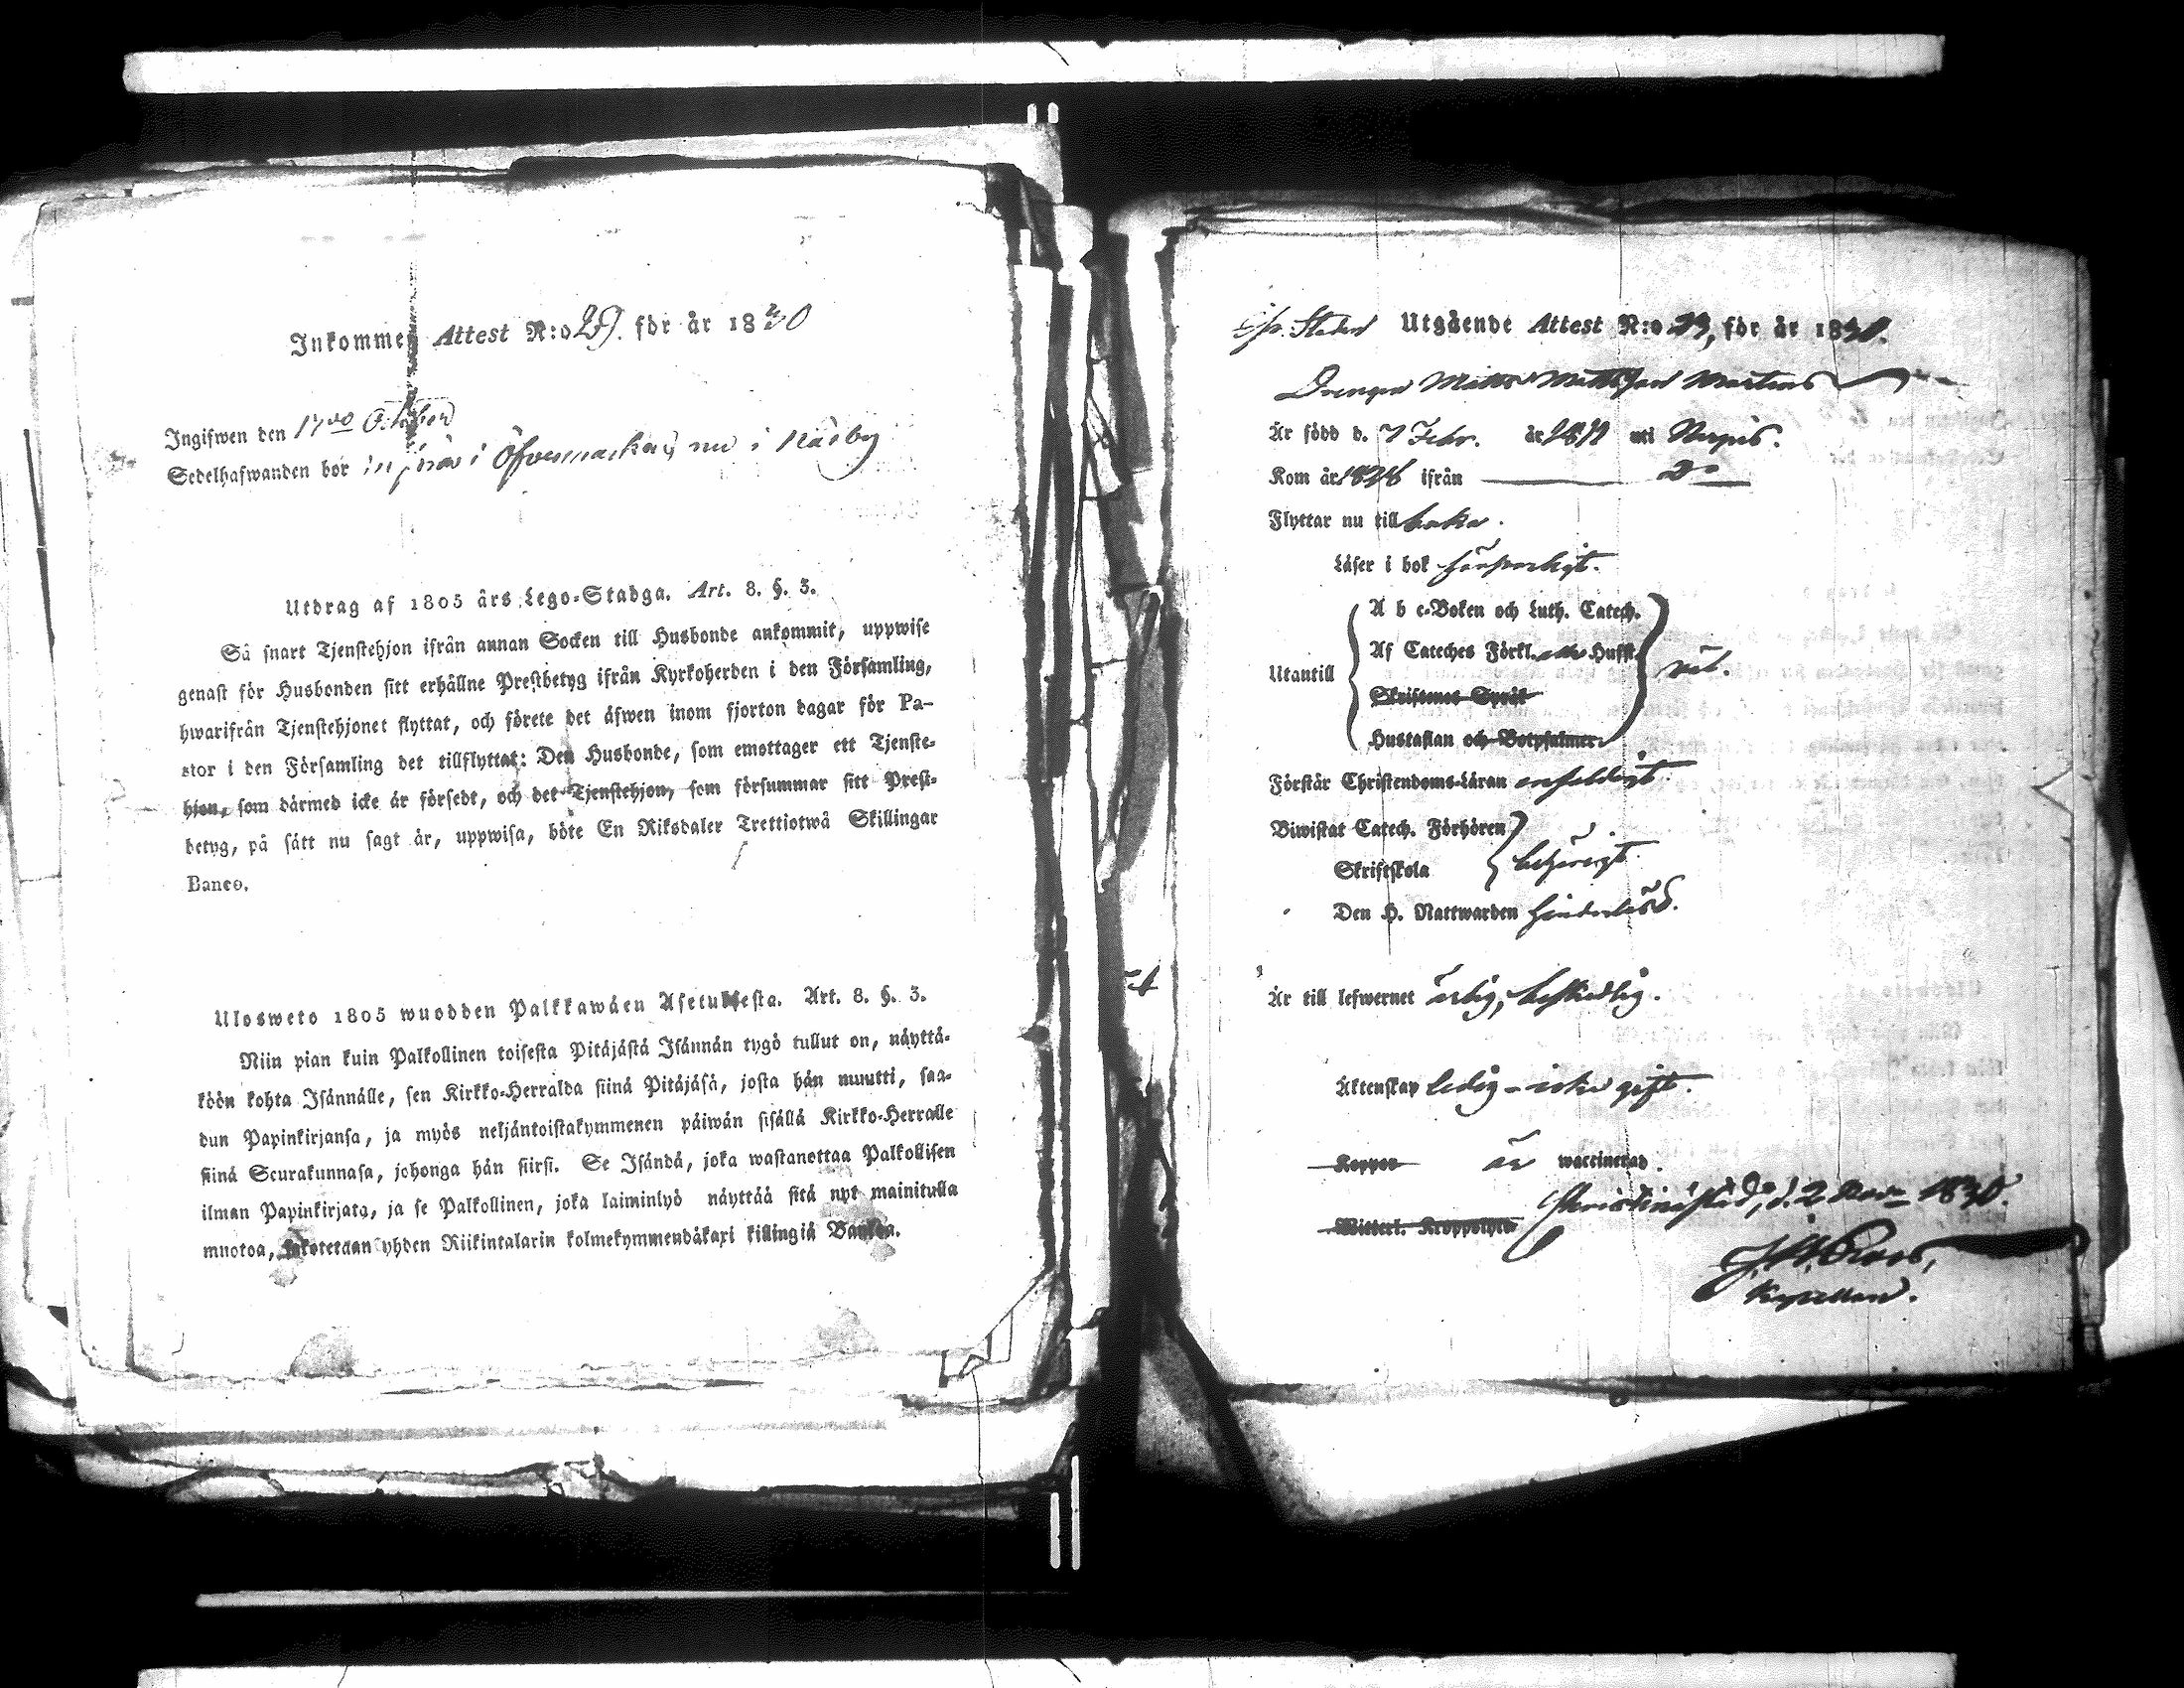 Inkommen Attest N:o 29. för år 1830
Ingifwen den 17de October
Sedelhafwanden bor i Öfvermarken, nu i Näsby
Utdrag af 1805 års Lego-Stadga. Art. 8. §. 3.
Så snart Tjenstehjon ifrån annan Socken till Husbonde ankommit, uppwise
genast för Husbonden sitt erhållne Prestbetyg ifrån Kyrkoherden i den Församling,
hwarifrån Tjenstehjonet flyttat, och förete det äfwen inom fjorton dagar för Pa-
stor i den Församling det tillflyttat: Den Husbonde, som emottager ett Tjenste-
hjon, som därmed icke är försedt, och det Tjenstehjon, som försummar sitt Prest-
betyg, på sätt nu sagt är, uppwisa, böte En Riksdaler Trettiotwå Skillingar
Banco.
Ulosweto 1805 wuodden Palkkawäen Asetuksesta. Art. 8. §. 3.
Niin pian kuin Palkollinen toisesta Pitäjästä Isännän tygö tullut on, näyttä-
köön kohta Isännälle, sen Kirkko-Herralda siinä Pitäjäsä, josta hän muutti, saa-
dun Papinkirjansa, ja myös neljäntoistakymmenen päiwän sisällä Kirkko-Herralle
siinä Seurakunnasa, johonga hän siirsi. Se Isändä, joka wastanottaa Palkollisen
ilman Papinkirjata, ja se Palkollinen, joka laiminlyö näyttää sitä nyt mainitulla
muotoa, sakotetaan yhden Riikintalarin kolmekymmendäkaxi killingiä Bankoa.
Utgående Attest N:o 23, för år 1830.
Drengen Matts Mattsson Martens
Är född d. 7 Febr. år 1811 uti Nerpis.
Kom år 1828 ifrån Do
Flyttar nu till baka.
Läser i bok försvarligt.
A b c-Boken och Luth. Catech.
Af Cateches Förkl. Huffst.
Utantill
Skriftenes Språk
Hustaflan och Botpsalmer
Förstår Christendoms-Läran enfaldigt.
Biwistat Catech. Förhören
Skriftskola
behörigt.
Den H. Nattwarden
Är till lefwernet ärlig, beskedlig.
Äktenskap ledig – icke gift.
Koppor är waccinerad.
Christinæstad, d. 2 Nov. 1830.
Witterl. Kroppslyte
Kapellan.